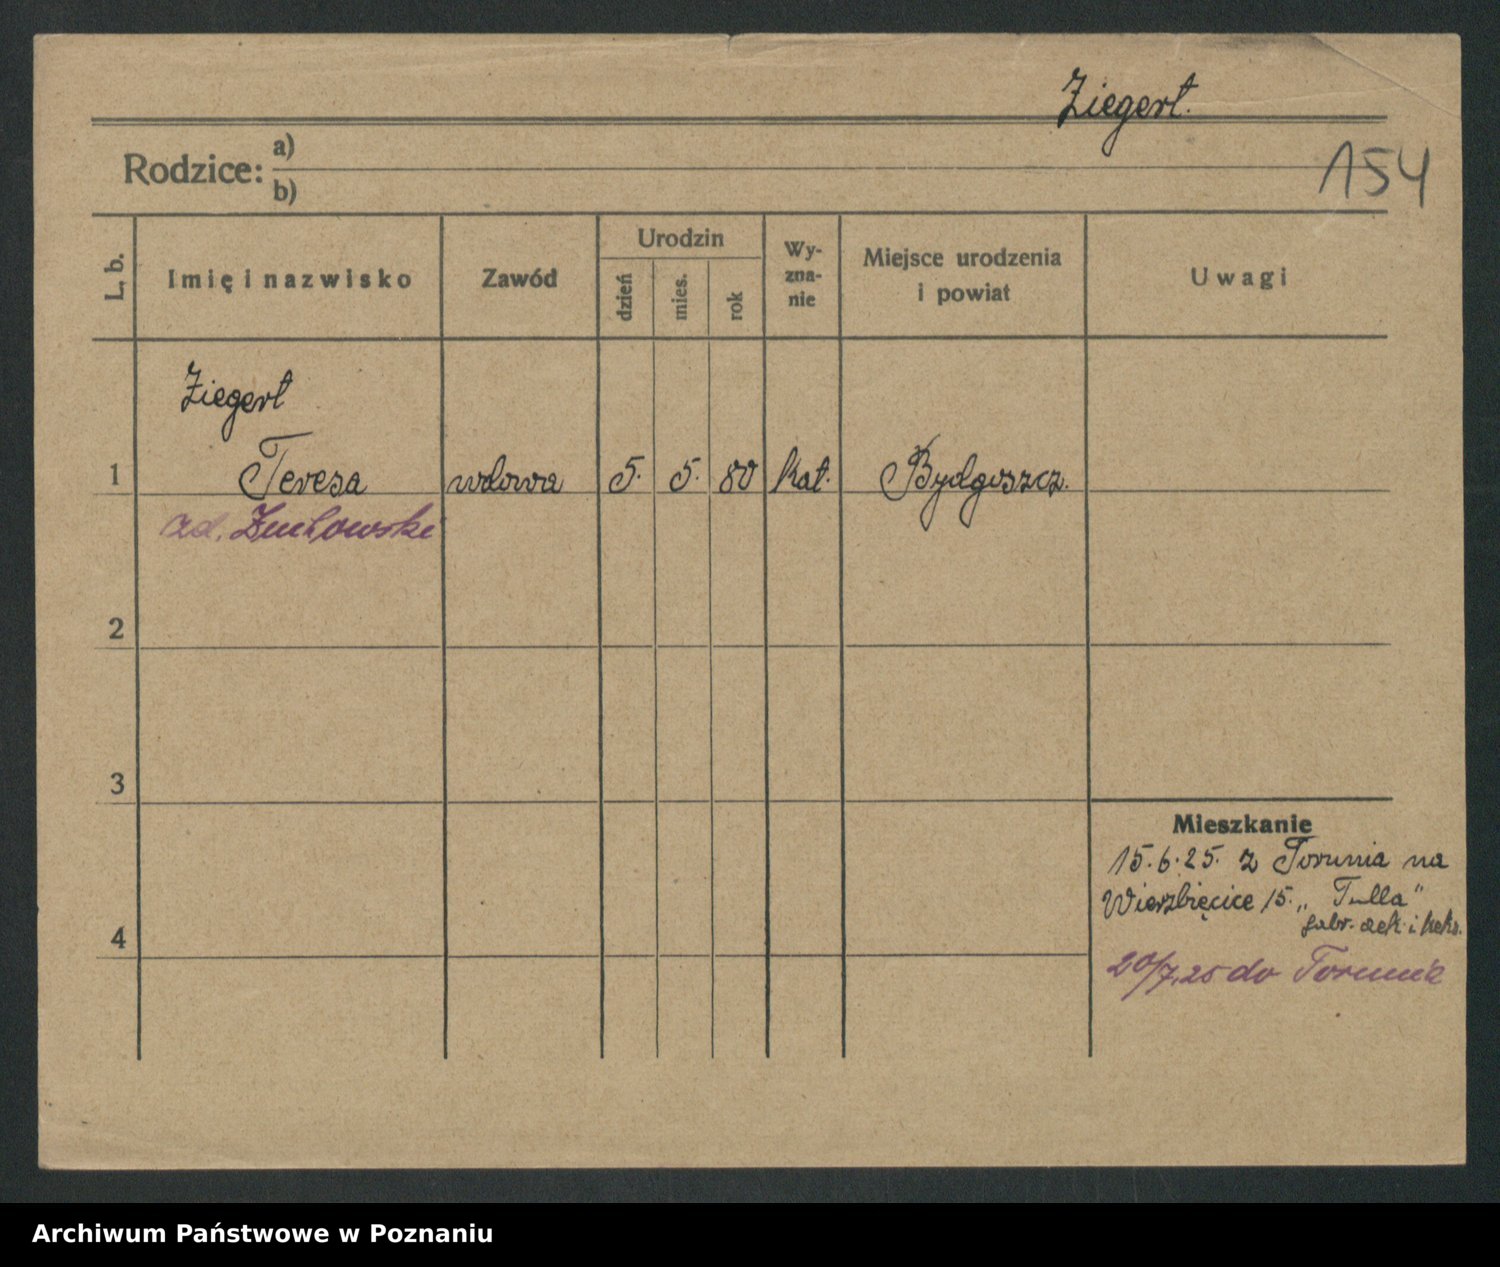 Ziegert.
154
Rodzice: a)
b)
L. b.
Imię i nazwisko
Zawód
Urodzin
dzień
mies.
rok
Wy-
zna-
nie
Miejsce urodzenia
i powiat
Uwagi
Ziegert
1 Teresa wdowa 5. 5. 80 kat. Bydgoszcz.
zd.
2
3
Mieszkanie
15.6.25. z Torunia na
Wierzbięcice 15. „Tulla"
fabr. czek. i keks.
4
20/7.25 do Torunia
Archiwum Państwowe w Poznaniu